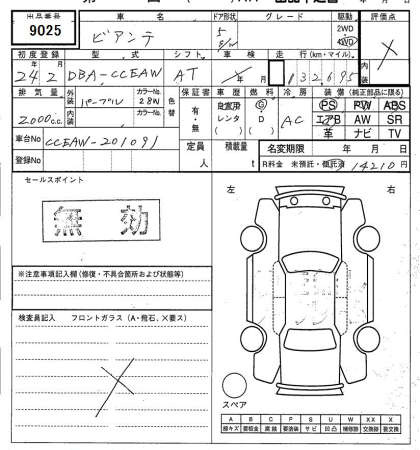 出品番号 車名 ドア形状 グレード 駆動 評価点
9025 ビアンテ 5 2WD 4WD ×
初度登録 型式 シフト 車検 走行(km・マイル) 内
24年2月 DBA-CCEAW AT 年 月 132,695
排気量 外装 カラーNo. 色替 保証書 車歴 燃料 冷房 装備(純正部品に限る)
2000c.c. パープル 28W 有・無 自家用 G AC PS PW ABS
内装 カラーNo. レンタ D エアB AW SR
( ) ( ) 革 ナビ TV
車台No CCEAW-201091 定員 積載量 名変期限 年 月 日
登録No 人 t R料金 未預託・預託済 14210円
セールスポイント 左 右
無効
※注意事項記入欄(修復・不具合箇所および状態等)
検査員記入 フロントガラス(A・飛石、×要ス)
スペア
A B C P S U W XX X
線キズ 要板金 腐蝕 要塗装 サビ 凹凸 補修跡 交換跡 要交換